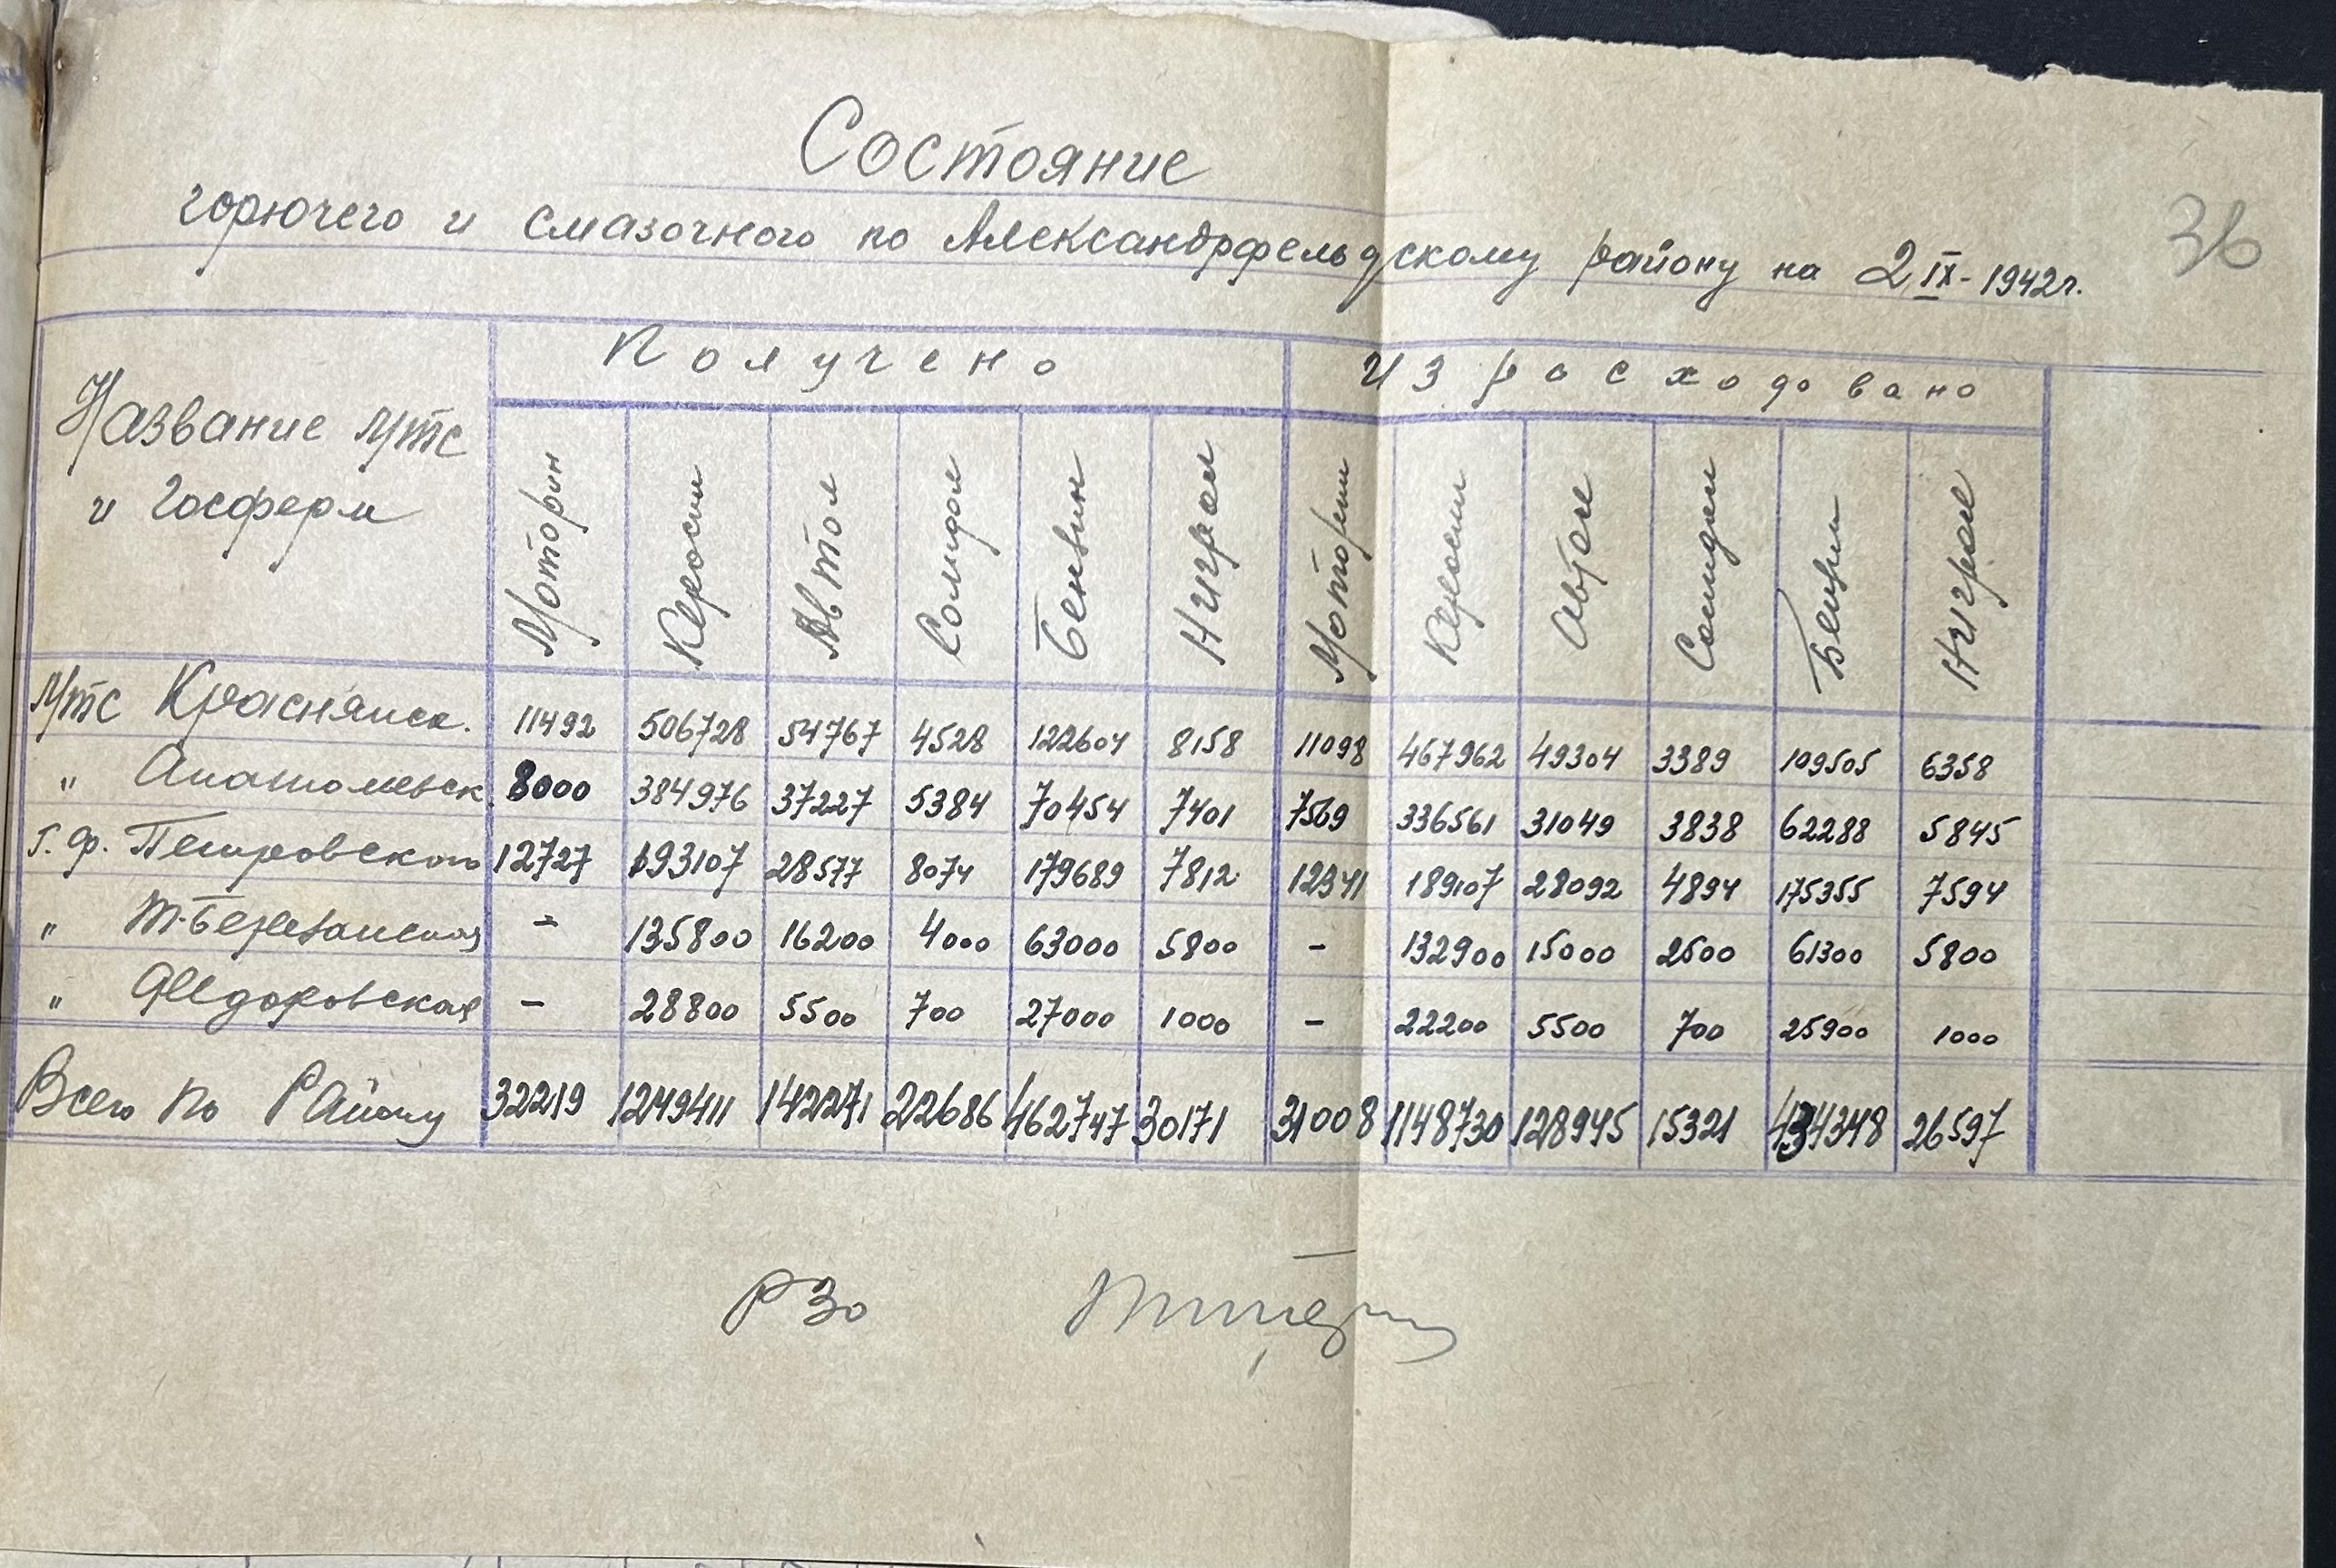 36
Состояние
горючего и смазочного по Александрфельдскому району на 2 IX - 1942 г.
Название МТС и Госферм | Получено | Израсходовано
Моторин | Керосин | Автол | Солидол | Бензин | Нигрол | Моторин | Керосин | Автол | Солидол | Бензин | Нигрол
МТС Краснянск. | 11492 | 506728 | 54767 | 4528 | 122604 | 8158 | 11098 | 467962 | 49304 | 3389 | 109505 | 6358
" Анатольевск. | 8000 | 384976 | 37227 | 5384 | 70454 | 7401 | 7569 | 336561 | 31049 | 3838 | 62288 | 5845
Г. Ф. Петровского | 12727 | 193107 | 28577 | 8074 | 179689 | 7812 | 12341 | 189107 | 28092 | 4894 | 175355 | 7594
" Т-Березанская | - | 135800 | 16200 | 4000 | 63000 | 5800 | - | 132900 | 15000 | 2500 | 61300 | 5800
" Федоровская | - | 28800 | 5500 | 700 | 27000 | 1000 | - | 22200 | 5500 | 700 | 25900 | 1000
Всего по Району | 32219 | 1249411 | 142271 | 22686 | 462747 | 30171 | 31008 | 1148730 | 128945 | 15321 | 434348 | 26597
РЗО